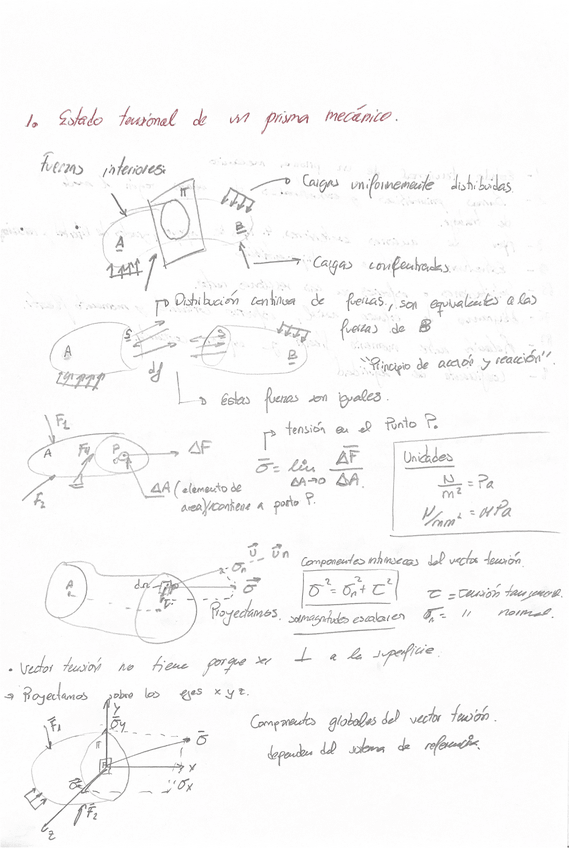 1. Estado tensional de un prisma mecánico.
Fuerzas interiores:
π
Cargas uniformemente distribuidas
A
B
Cargas concentradas
Distribución continua de fuerzas, son equivalentes a las
fuerzas de B
A
S
B
df
"Principio de acción y reacción".
éstas fuerzas son iguales.
F1
tensión en el Punto P.
A
F4
P
ΔF
σ = lim ΔF / ΔA
ΔA→0
F2
ΔA (elemento de
area) contiene a punto P.
Unidades
N/m² = Pa
N/mm² = MPa
σn
σ
Componentes intrínsecas del vector tensión.
σ² = σn² + τ²
τ = tensión tangencial
σn = " normal.
Proyectamos.
son magnitudes escalares
• Vector tensión no tiene porque ser ⊥ a la superficie.
→ Proyectamos sobre los ejes x y z.
F1
y
σy
π
σ
x
σx
F2
z
Componentes globales del vector tensión.
dependen del sistema de referencia.